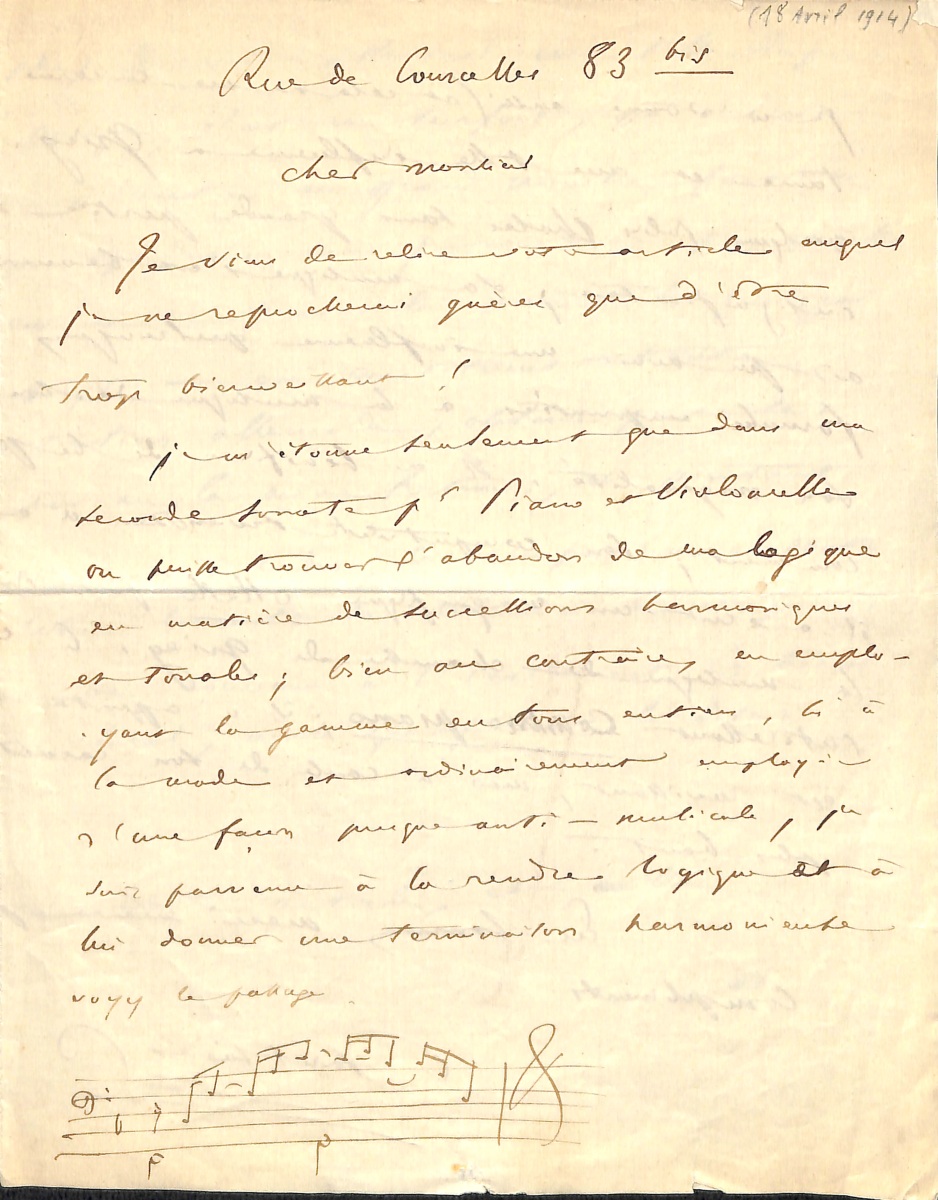 (18 Avril 1914)
Rue de Courcelles 83 bis
cher monsieur
Je viens de relire votre article auquel
je ne reprocherai guères que d'être
trop bienveillant !
je m'étonne seulement que dans ma
seconde sonate pr Piano et Violoncelle
on puisse trouver l'abandon de ma logique
en matière de successions harmoniques
et tonales ; bien au contraire, en emplo-
yant la gamme en tons entiers, si à
la mode et ordinairement employée
d'une façon presque anti-musicale, je
suis parvenu à la rendre logique et à
lui donner une terminaison harmonieuse
voyez le passage